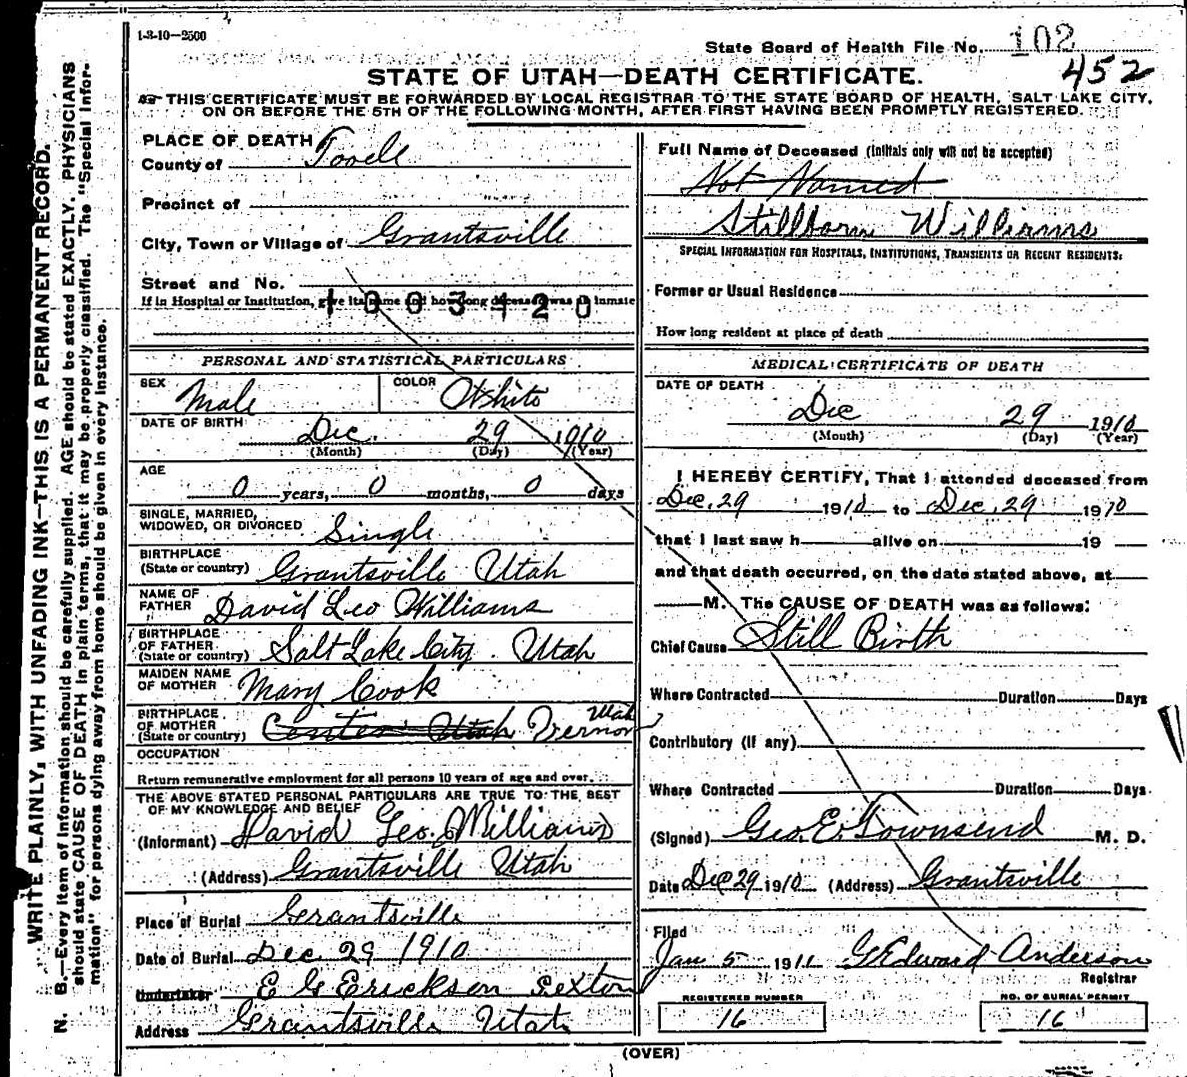 1-3-10—2500
State Board of Health File No. 102
452
STATE OF UTAH—DEATH CERTIFICATE.
THIS CERTIFICATE MUST BE FORWARDED BY LOCAL REGISTRAR TO THE STATE BOARD OF HEALTH, SALT LAKE CITY,
ON OR BEFORE THE 5TH OF THE FOLLOWING MONTH, AFTER FIRST HAVING BEEN PROMPTLY REGISTERED.
WRITE PLAINLY, WITH UNFADING INK—THIS IS A PERMANENT RECORD.
N. B.—Every item of information should be carefully supplied. AGE should be stated EXACTLY. PHYSICIANS
should state CAUSE OF DEATH in plain terms, that it may be properly classified. The "Special Infor-
mation" for persons dying away from home should be given in every instance.
PLACE OF DEATH
County of Tooele
Precinct of
City, Town or Village of Grantsville
Street and No.
If in Hospital or Institution, give its name and how long deceased was an inmate
1003120
PERSONAL AND STATISTICAL PARTICULARS
SEX Male COLOR White
DATE OF BIRTH Dec. 29 1910
(Month) (Day) (Year)
AGE
0 years, 0 months, 0 days
SINGLE, MARRIED,
WIDOWED, OR DIVORCED Single
BIRTHPLACE
(State or country) Grantsville Utah
NAME OF
FATHER David Leo Williams
BIRTHPLACE
OF FATHER
(State or country) Salt Lake City. Utah
MAIDEN NAME
OF MOTHER Mary Cook
BIRTHPLACE
OF MOTHER
(State or country) Center Utah Vernon Utah
OCCUPATION
Return remunerative employment for all persons 10 years of age and over.
THE ABOVE STATED PERSONAL PARTICULARS ARE TRUE TO THE BEST
OF MY KNOWLEDGE AND BELIEF
(Informant) David Geo. Williams
(Address) Grantsville Utah
Place of Burial Grantsville
Date of Burial Dec 29 1910
Undertaker E G Erickson Sexton
Address Grantsville Utah
Full Name of Deceased (Initials only will not be accepted)
Not Named
Stillborn Williams
SPECIAL INFORMATION FOR HOSPITALS, INSTITUTIONS, TRANSIENTS OR RECENT RESIDENTS:
Former or Usual Residence
How long resident at place of death
MEDICAL CERTIFICATE OF DEATH
DATE OF DEATH
Dec 29 1910
(Month) (Day) (Year)
I HEREBY CERTIFY, That I attended deceased from
Dec. 29 1910 to Dec. 29 1910
that I last saw h alive on 19
and that death occurred, on the date stated above, at
M. The CAUSE OF DEATH was as follows:
Chief Cause Still Birth
Where Contracted Duration Days
Contributory (if any)
Where Contracted Duration Days
(Signed) Geo. E. Townsend M. D.
Date Dec 29 1910 (Address) Grantsville
Filed
Jan 5 1911 G Edward Anderson
Registrar
REGISTERED NUMBER
16
NO. OF BURIAL PERMIT
16
(OVER)